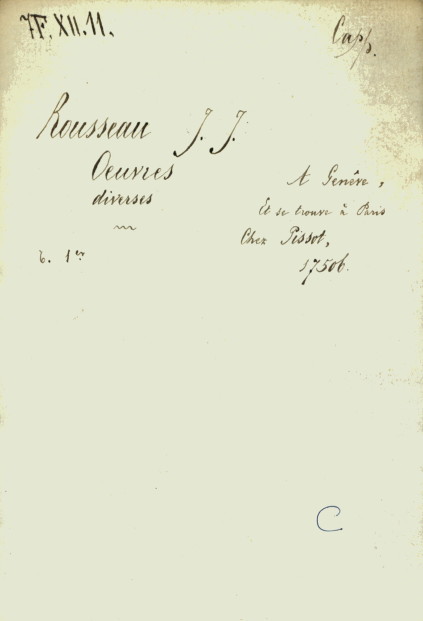 7F. XII. 11.
Capp.
Rousseau J. J.
Oeuvres
diverses
A Genêve,
Et se trouve à Paris
Chez Pissot,
t. 1er
C